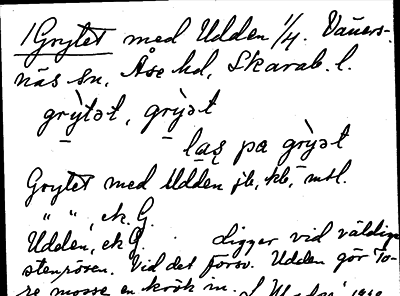 1 Grytet med Udden 1/4. Väners-
näs sn, Åse hd, Skarab. l.
grỳtət, grỳət
las̨ pa grỳət
Grytet med Udden jb, kb, mtl.
" ", ek. G.
Udden, ek G. Ligger vid väldiga
stenrösen. Vid det försv. Udden gör To-
re mosse en krök in.